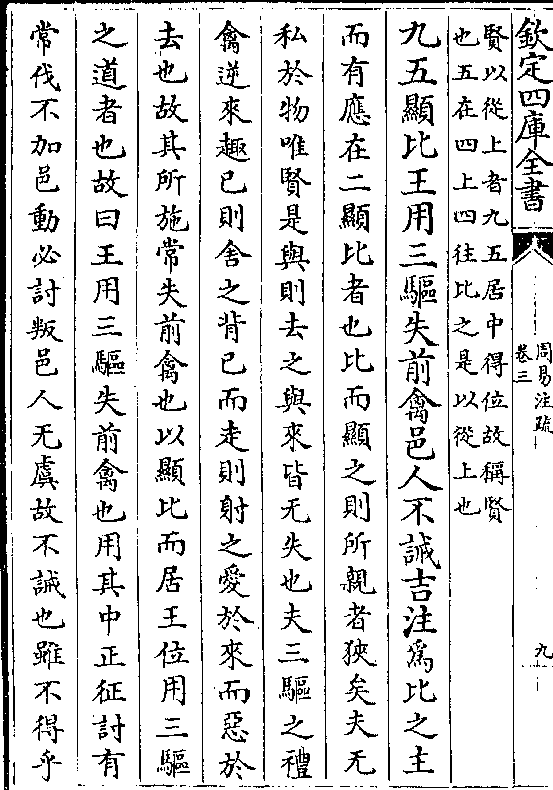 欽定四庫全書
周易注疏
卷三
九
賢以從上者九五居中得位故稱賢
也五在四上四往比之是以從上也
九五顯比王用三驅失前禽邑人不誡吉注為比之主
而有應在二顯比者也比而顯之則所親者狹矣夫无
私於物唯賢是與則去之與來皆无失也夫三驅之禮
禽逆來趣已則舍之背已而走則射之愛於來而惡於
去也故其所施常失前禽也以顯比而居王位用三驅
之道者也故曰王用三驅失前禽也用其中正征討有
常伐不加邑動必討叛邑人无虞故不誡也雖不得乎